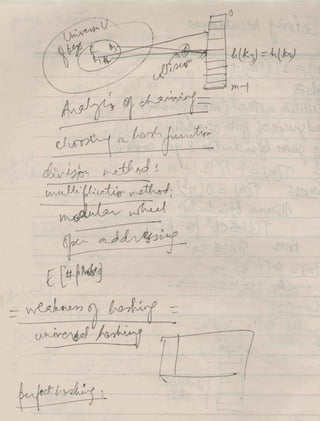 Universe U
of keys
0
h(k₁) = h(k₂)
m-1
Analysis of chaining
choosing a hash functio
division method:
multiplicatio method,
modular wheel
open addressing
E [#probes]
= weakness of hashing =
universal hashing
perfect hashing: